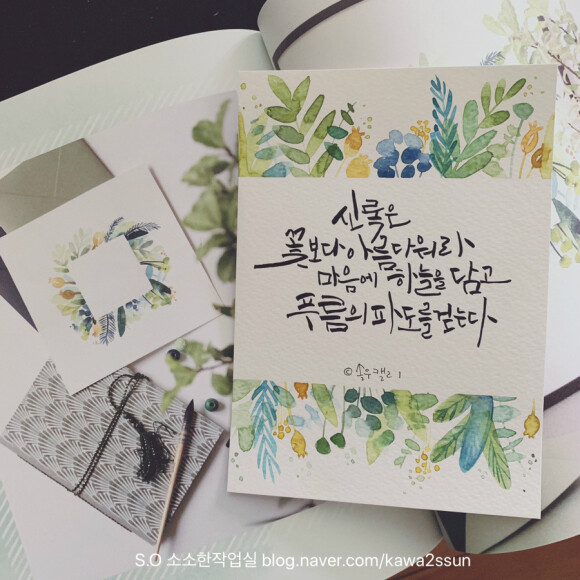 신록은
꽃보다 아름다워라
마음에 하늘을 담고
푸름의 파도를 걷는다
S.O 소소한작업실 blog.naver.com/kawa2ssun